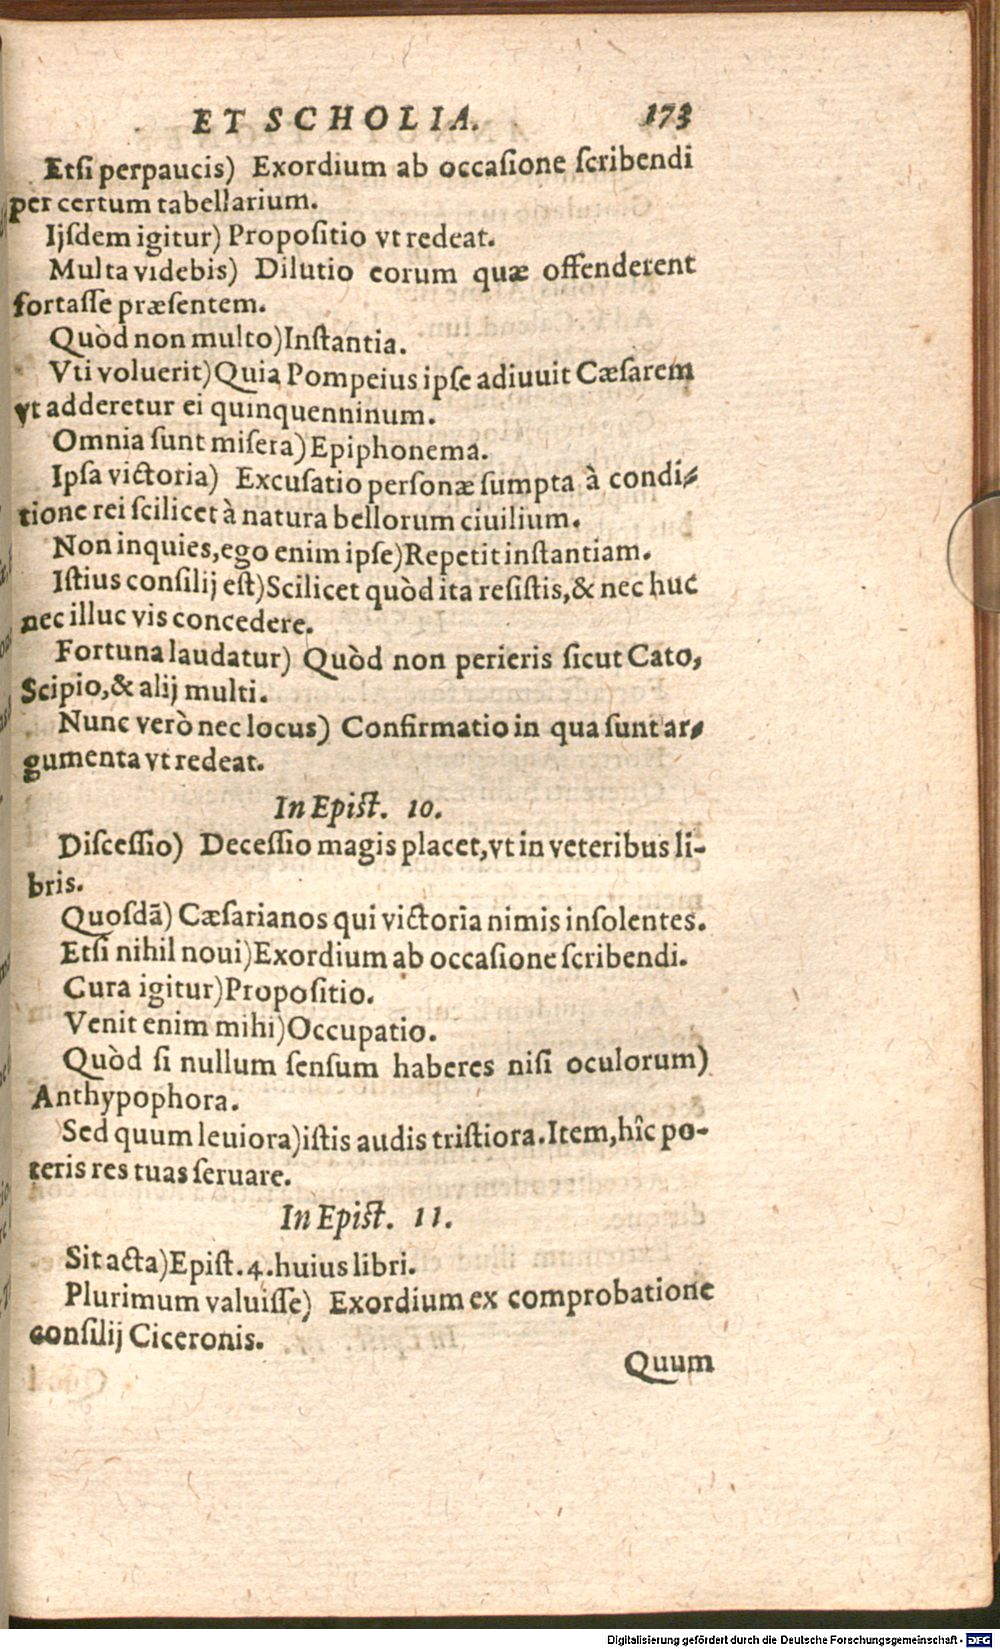 ET SCHOLIA. 173
Etſi perpaucis) Exordium ab occaſione ſcribendi
per certum tabellarium.
Ijſdem igitur) Propoſitio vt redeat.
Multa videbis) Dilutio eorum quæ offenderent
fortaſſe præſentem.
Quòd non multo) Inſtantia.
Vti voluerit) Quia Pompeius ipſe adiuuit Cæſarem
vt adderetur ei quinquenninum.
Omnia ſunt miſera) Epiphonema.
Ipſa victoria) Excuſatio perſonæ ſumpta à condi-
tione rei ſcilicet à natura bellorum ciuilium.
Non inquies, ego enim ipſe) Repetit inſtantiam.
Iſtius conſilij eſt) Scilicet quòd ita reſiſtis, & nec huc
nec illuc vis concedere.
Fortuna laudatur) Quòd non perieris ſicut Cato,
Scipio, & alij multi.
Nunc verò nec locus) Confirmatio in qua ſunt ar-
gumenta vt redeat.
In Epiſt. 10.
Diſceſſio) Deceſſio magis placet, vt in veteribus li-
bris.
Quoſdã) Cæſarianos qui victoria nimis inſolentes.
Etſi nihil noui) Exordium ab occaſione ſcribendi.
Cura igitur) Propoſitio.
Venit enim mihi) Occupatio.
Quòd ſi nullum ſenſum haberes niſi oculorum)
Anthypophora.
Sed quum leuiora) iſtis audis triſtiora. Item, hîc po-
teris res tuas ſeruare.
In Epiſt. 11.
Sit acta) Epiſt. 4. huius libri.
Plurimum valuiſſe) Exordium ex comprobatione
conſilij Ciceronis.
Quum
Digitalisierung gefördert durch die Deutsche Forschungsgemeinschaft - DFG